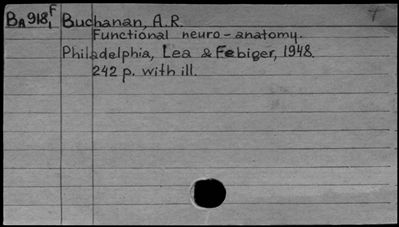 BA918,F Buchanan, A.R.
Functional neuro-anatomy.
Philadelphia, Lea & Febiger, 1948.
242 p. with ill.